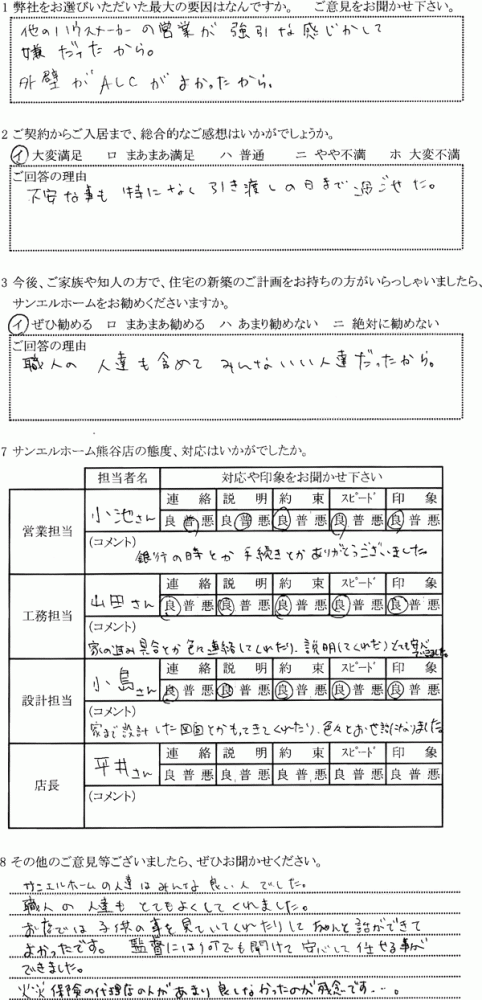 1 弊社をお選びいただいた最大の要因はなんですか。 ご意見をお聞かせ下さい。
他のハウスメーカーの営業が強引な感じがして
嫌だったから。
外壁がALCがよかったから。
2 ご契約からご入居まで、総合的なご感想はいかがでしょうか。
イ 大変満足 ロ まあまあ満足 ハ 普通 ニ やや不満 ホ 大変不満
ご回答の理由
不安な事も特になく引き渡しの日まで過ごせた。
3 今後、ご家族や知人の方で、住宅の新築のご計画をお持ちの方がいらっしゃいましたら、
サンエルホームをお勧めくださいますか。
イ ぜひ勧める ロ まあまあ勧める ハ あまり勧めない ニ 絶対に勧めない
ご回答の理由
職人の人達も含めてみんないい人達だったから。
7 サンエルホーム熊谷店の態度、対応はいかがでしたか。
担当者名 対応や印象をお聞かせ下さい
営業担当 小池さん 連絡 説明 約束 スピード 印象
良 普 悪 良 普 悪 良 普 悪 良 普 悪 良 普 悪
(コメント)
銀行の時とか手続きとかありがとうございました
工務担当 山田さん 連絡 説明 約束 スピード 印象
良 普 悪 良 普 悪 良 普 悪 良 普 悪 良 普 悪
(コメント)
家の進み具合とか色々連絡してくれたり、説明してくれたり とても
設計担当 小島さん 連絡 説明 約束 スピード 印象
良 普 悪 良 普 悪 良 普 悪 良 普 悪 良 普 悪
(コメント)
家まで設計した図面とかもってきてくれたり、色々とお世話になりました
店長 平井さん 連絡 説明 約束 スピード 印象
良 普 悪 良 普 悪 良 普 悪 良 普 悪 良 普 悪
(コメント)
8 その他のご意見等ございましたら、ぜひお聞かせください。
サンエルホームの人達はみんな良い人でした。
職人の人達もとてもよくしてくれました。
子供の事を見ていてくれたりしてちゃんと話ができて
よかったです。 監督には何でも聞けて安心して任せる事が
できました。
火災保険の代理店の人があまり良くなかったのが残念です…。